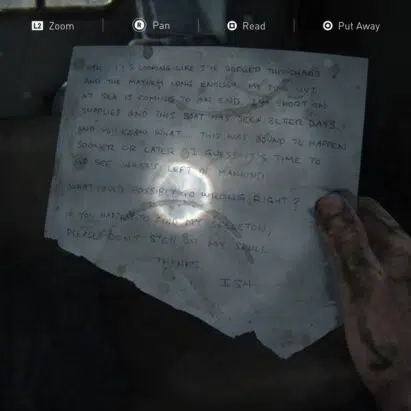 L2 Zoom
R Pan
Read
Put Away
WELL, IT'S LOOKING LIKE I'VE DODGED
AND THE MAYHEM LONG ENOUGH. MY TIME OUT
AT SEA IS COMING TO AN END. I'M SHORT ON
SUPPLIES AND THIS BOAT HAS SEEN BETTER DAYS.
AND YOU KNOW WHAT... THIS WAS BOUND TO HAPPEN
SOONER OR LATER. I GUESS IT'S TIME TO
GO SEE WHAT'S LEFT OF MANKIND
WHAT COULD POSSIBLY GO WRONG, RIGHT?
IF YOU HAPPEN TO FIND MY SKELETON,
PLEASE DON'T STEP ON MY SKULL
THANKS
ISH